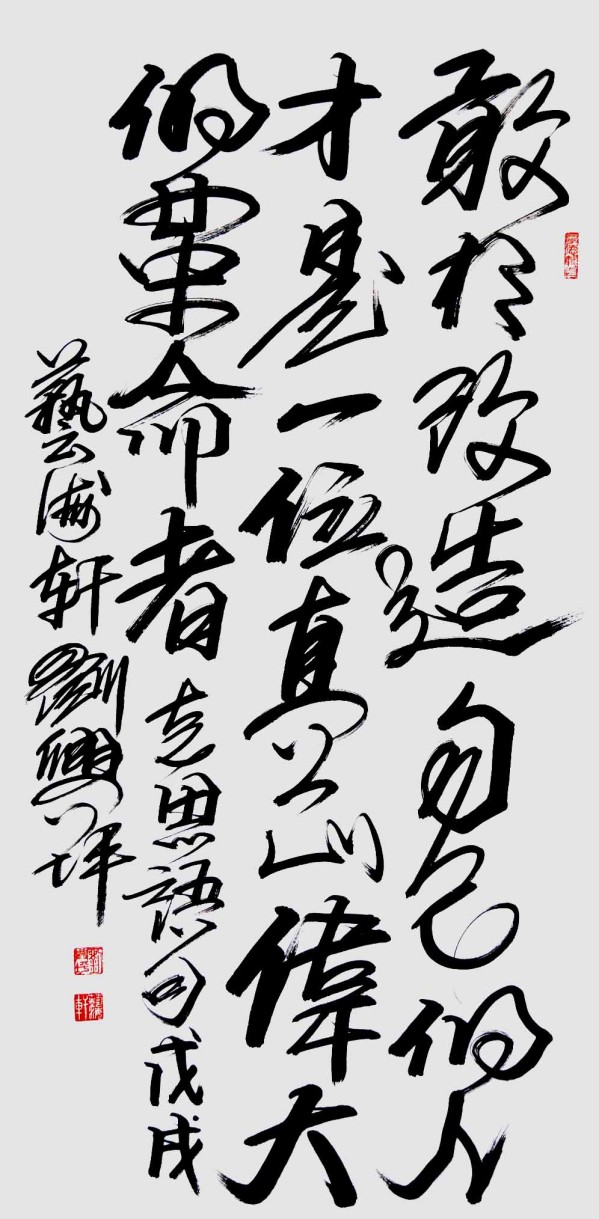 敢於改造自己的人
才是一位真正偉大
的革命者 克思語句 戊戌
藝海轩劉興坪